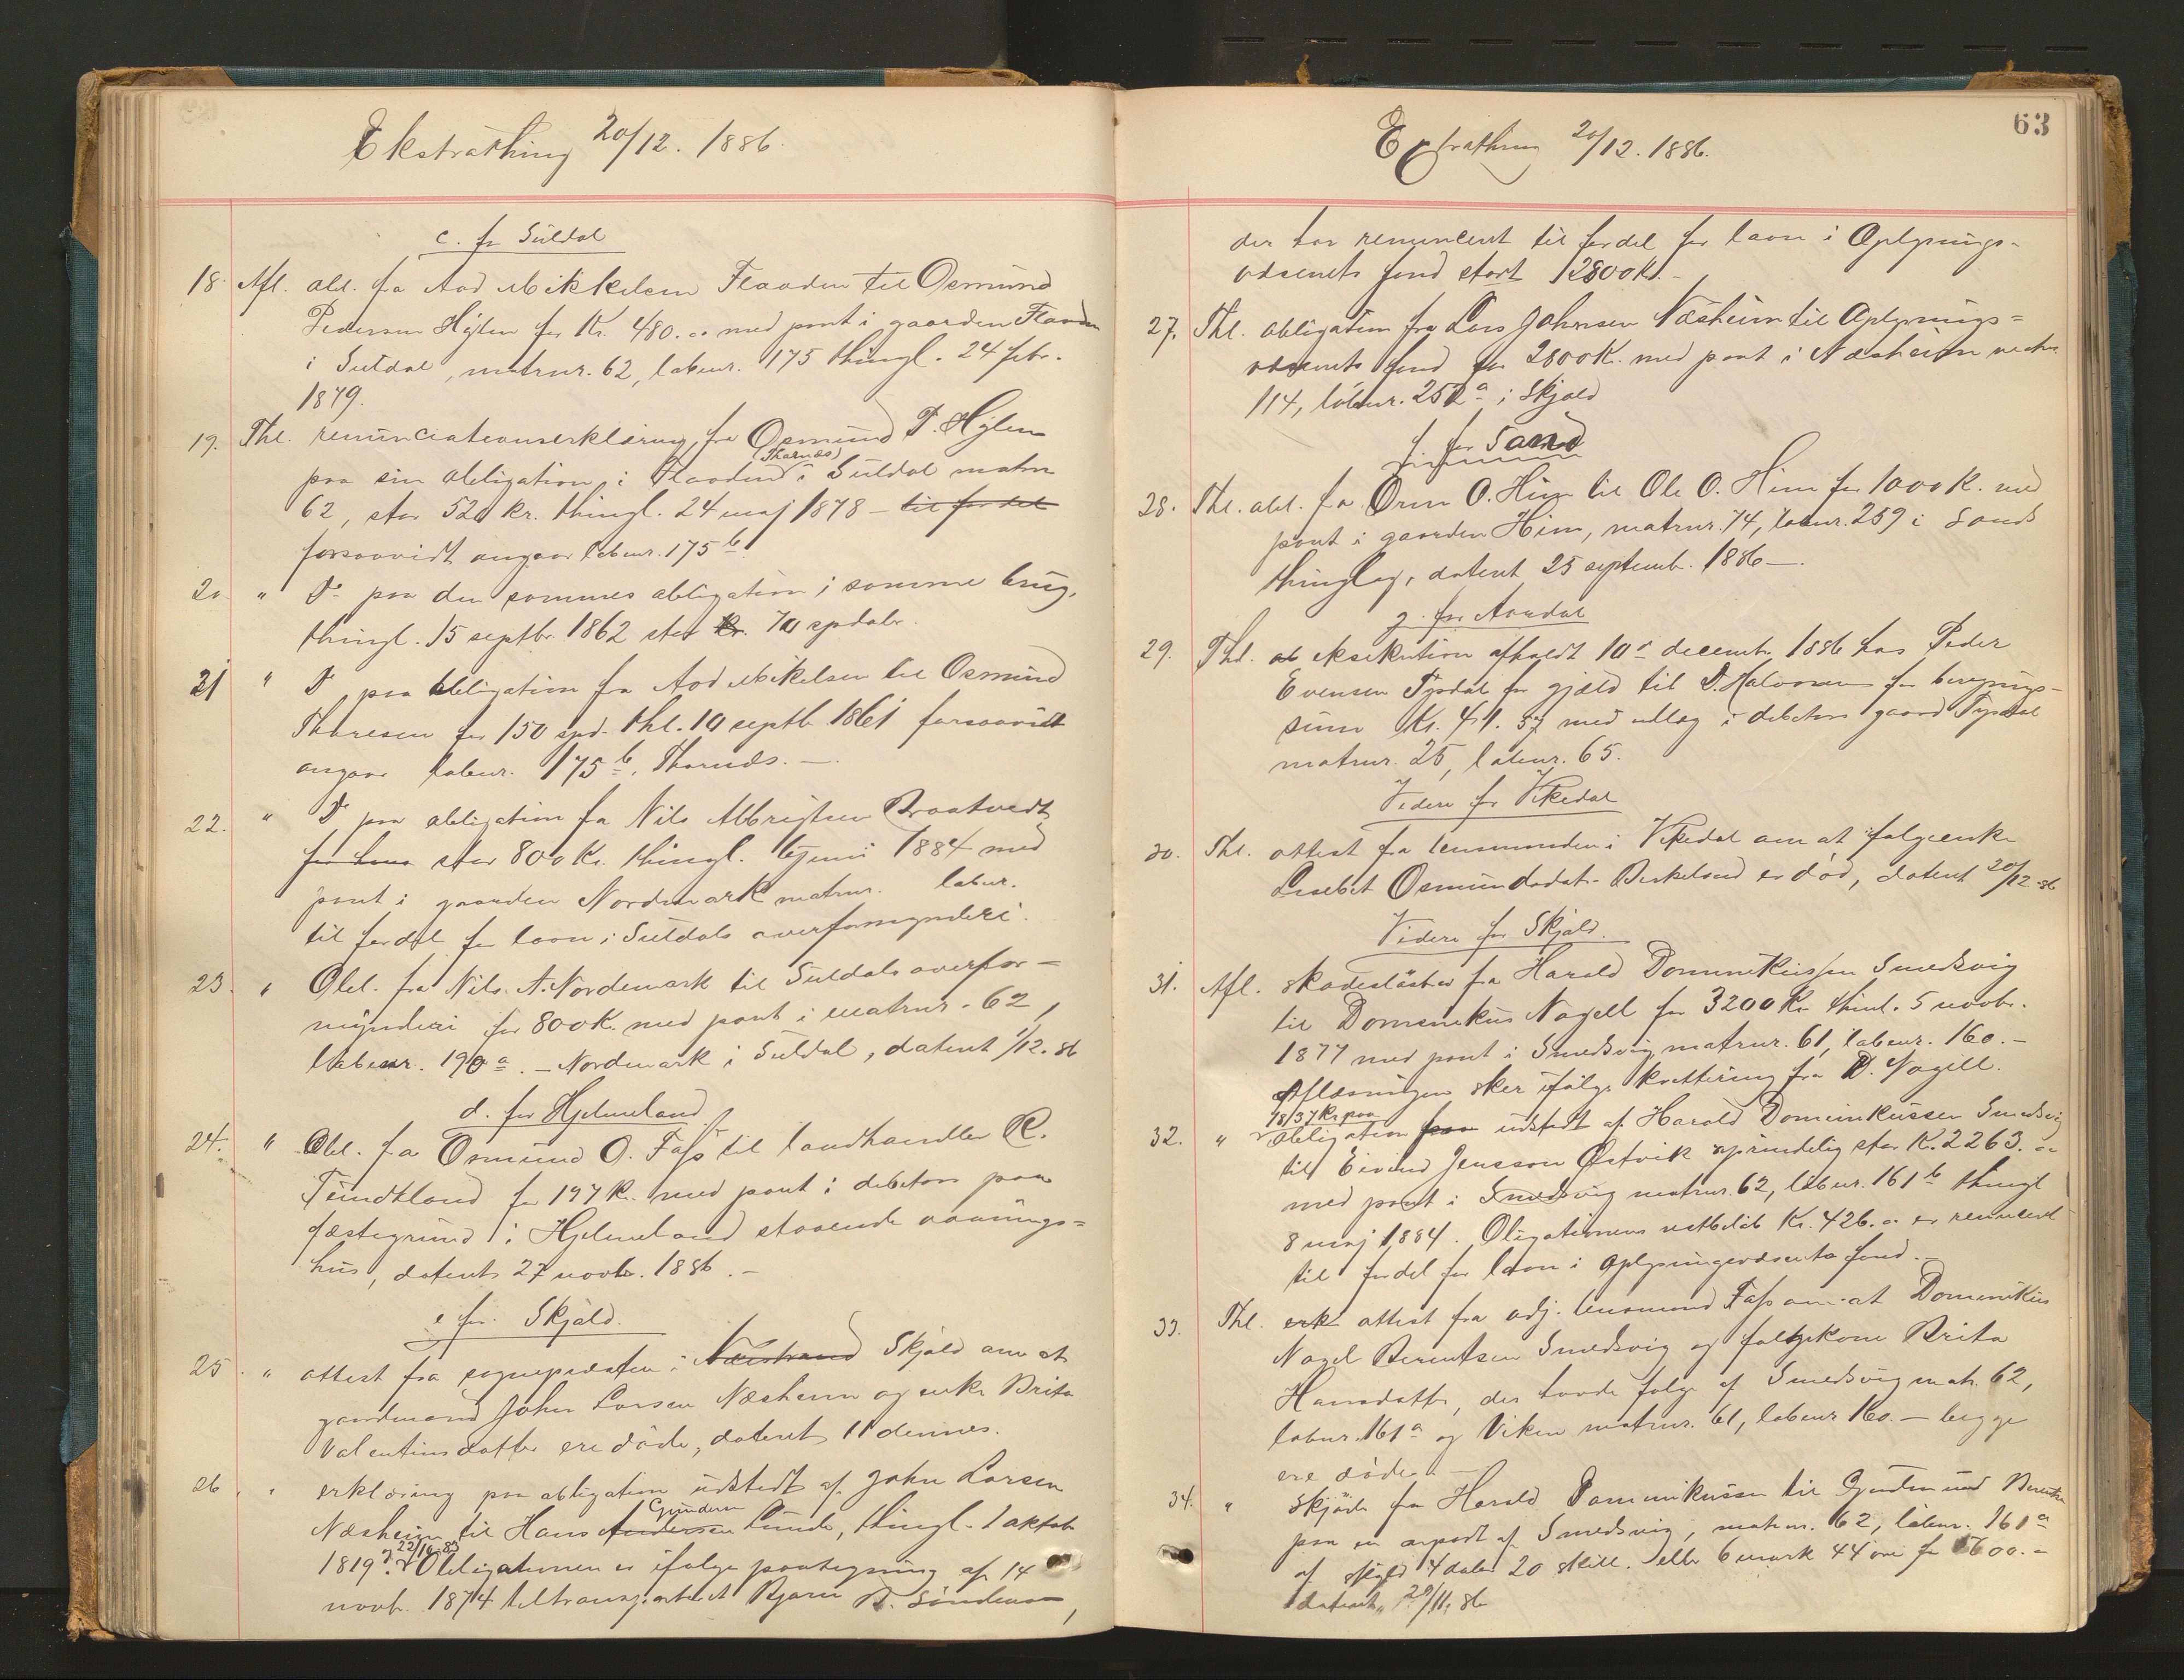 Ekstrathing 20/12. 1886.
c. for Suldal
18. Afl. obl. fra Aad Mikkelsen Flaaden til Osmund
Pedersen Hÿlen for Kr. 480.00 med pant i gaarden Flaaden
i Suldal, matrnr. 62, løbenr. 175 thingl. 24 febr.
1879.
19. Thl. renunciationserklæring fra Osmund P. Hylen
paa sin obligation i Flaaden (Tharnæs) i Suldal matrn
62, stor 520 Kr. thingl. 24 maj 1878 – til fordel
forsaavidt angaar løbenr. 175 b
20 " Do paa den sammes obligation i samme brug,
thingl. 15 septbr. 1862 stor Kr. 70 spdalr.
21 " Do paa obligation fra Aad Mikelsen til Osmund
Tharesen for 150 spd. thl. 10 septb 1861 forsaavidt
angaar løbenr. 175 b, Tharnæs. —
22. " Do paa obligation fra Nils Albrigtsen Braatvedt
for laan stor 800 Kr. thingl. 6 juni 1884 med
pant i gaarden Nordmark matrnr. løbnr.
til fordel for laan i Suldals overformynderi.
23. " Obl. fra Nils A. Nordmark til Suldals overfor-
mynderi for 800 K. med pant i matrnr. 62,
løbenr. 190 a. – Nordmark i Suldal, datert 1/12. 86
d. for Hjelmeland
24. " Obl. fra Osmund O. Fass til landhandler R.
Tundtland for 197 K. med pant i debitors paa
fæstegrund i Hjelmeland staaende vaanings=
hus, datert 27 novbr. 1886. –
e for Skjold.
25. " attest fra sognepræsten i Nærstrand Skjold om at
gaardmand John Larsen Næsheim og enke Brita
Valentinsdatter ere døde, datert 11 dennes.
26. " erklæring paa obligation udstedt af John Larsen
Næsheim til Hans Andersen Gunders Lunde, thingl. 1 oktob
1819 . 22/10 83 Obligationen er ifølge paategning af 14
novb. 1874 tiltransporteret Bjarn B. Søndenaa,
63
Extrathing 20/12. 1886.
der har renunceret til fordel for laan i Oplysnings-
væsenets fond stort 12800 Kr. –
27. Thl. obligation fra Lars Johnsen Næsheim til Oplysnings=
væsenets fond for 2800 K. med pant i Næsheim matrn
114, løbenr. 252 a i Skjold
f. for Sand
28. Thl. obl. fra Orm O. Hiim til Ole O. Hiim for 1000 K. med
pant i gaarden Hiim, matrnr. 74, løbnr. 259 i Sands
thinglag, datert 25 septemb. 1886 —.
g. for Aardal
29. Thl. ob eksekution afholdt 10 decemb. 1886 hos Peder
Evensen Tysdal for gjæld til D. Halvorsen for beregnings-
sum Kr. 41. 57 med udlæg i debitors gaard Tysdal
matrnr. 25, løbenr. 65.
Videre for Vikedal
30. Thl. attest fra lensmanden i Vikedal om at følgeenke
Lisebet Osmundsdat. Birkeland er død, datert 20/12 86
Videre for Skjold.
31. Afl. skadesløsbrev fra Harald Dominikussen Smedsvig
til Domenikus Nagell for 3200 Kr. thinl. 5 novbr.
1877 med pant i Smedsvig matrnr. 61, løbenr. 160. –
Aflæsningen sker ifølge kvittering fra D. Nagell.
32. " 1837 Kr paa obligation fra udstedt af Harald Dominikussen Smedsvig
til Eivind Jensson Østvik oprindelig stor K. 2263. 00
med pant i Smedsvig matrnr. 62, løbnr. 161 b thingl
8 maj 1884. Obligationens restbeløb Kr. 426.00 er renunceret
til fordel for laan i Oplysningsvæsenets fond. —
33. Thl. erk attest fra adj. lensmand Fass om at Domenikus
Nagel Berentsen Smedsvig og følgekone Brita
Hansdatter, der havde følge af Smedsvig mat. 62,
løbnr. 161 a og Viken matrnr. 61, løbenr 160. — begge
ere døde. —
34. " skjøde fra Harald Domenikussen til Gudmund Berentsen
paa en anpart af Smedsvig, matrnr. 62, løbnr. 161 a
af skyld 4 daler 20 skill. eller 6 mark 44 øre for 5600.–
datert 29/11. 86